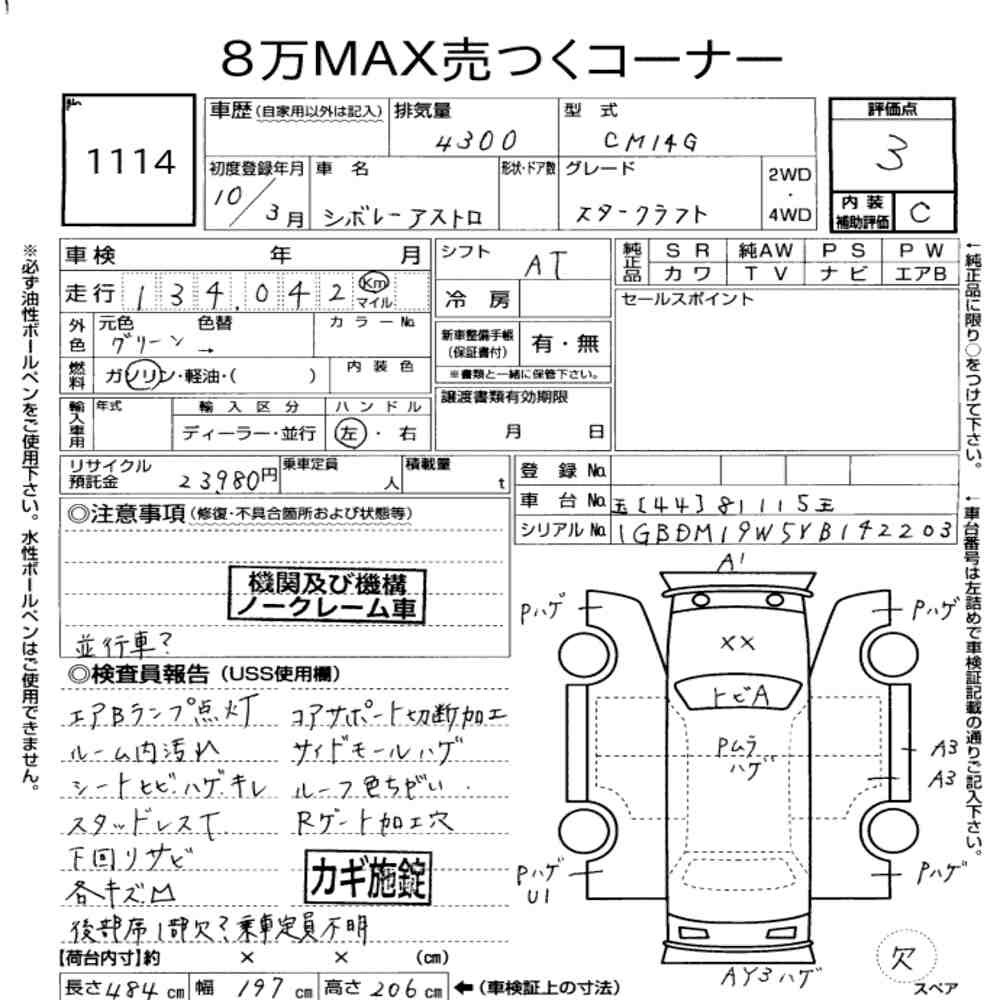 8万MAX売つくコーナー
1114
車歴(自家用以外は記入) 排気量 型 式 評価点
4300 CM14G 3
初度登録年月 車 名 形状・ドア数 グレード 2WD・4WD
10/3月 シボレーアストロ スタークラフト
内装補助評価 C
車検 年 月 シフト AT 純正品 SR 純AW PS PW
カワ TV ナビ エアB
走行 134,042 Km マイル 冷 房 セールスポイント
外色 元色 色替 カラーNo.
グリーン →
新車整備手帳(保証書付) 有・無
※書類と一緒に保管下さい。
燃料 ガソリン・軽油・( ) 内装色
譲渡書類有効期限
月 日
輸入車用 年式 輸入区分 ハンドル
ディーラー・並行 左・右
リサイクル預託金 23,980円 乗車定員 人 積載量 t
登録No.
車台No. 玉[44]81115玉
シリアルNo. 1GBDM19W5YB142203
◎注意事項(修復・不具合箇所および状態等)
機関及び機構
ノークレーム車
並行車?
◎検査員報告(USS使用欄)
エアBランプ点灯 コアサポート切断加工
ルーム内汚れ サイドモールハゲ
シートヒビ・ハゲ・キレ ルーフ色ちがい
スタッドレスT Rゲート加工穴
下回リサビ
各キズ凹
カギ施錠
後部席1部欠?乗車定員不明
【荷台内寸】約 × × (cm)
長さ484cm 幅197cm 高さ206cm ←(車検証上の寸法)
A1
Pハゲ Pハゲ
××
トビA
Pムラ
ハゲ
A3
A3
Pハゲ Pハゲ
U1
AY3ハゲ
欠
スペア
※必ず油性ボールペンをご使用下さい。水性ボールペンはご使用できません。
←純正品に限り○をつけて下さい。
←車台番号は左詰めで車検証記載の通りご記入下さい。